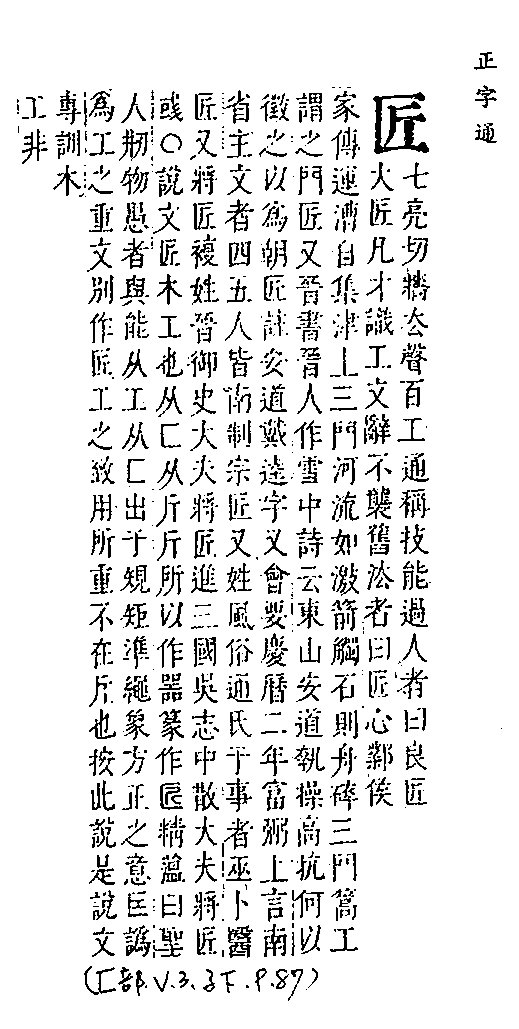 正字通
匠
七亮切牆去聲百工通稱技能過人者曰良匠
大匠凡才識工文辭不襲舊法者曰匠心鄴侯
家傳運漕自集津上三門河流如激箭觸石則舟碎三門篙工
謂之門匠又晉書晉人作雪中詩云東山安道執操高抗何以
徵之以為朝匠註安道戴逵字又會要慶曆二年富弼上言南
省主文者四五人皆兩制宗匠又姓風俗通氏于事者巫卜醫
匠又將匠複姓晉御史大夫將匠進三國吳志中散大夫將匠
彧〇說文匠木工也从匚从斤斤所以作器篆作匠精薀曰聖
人剏物愚者與能从工从匚出于規矩準繩象方正之意匡譌
為工之重文別作匠工之致用所重不在斤也按此說是說文
專訓木
工非
(匚部.V.3.子下.P.87)